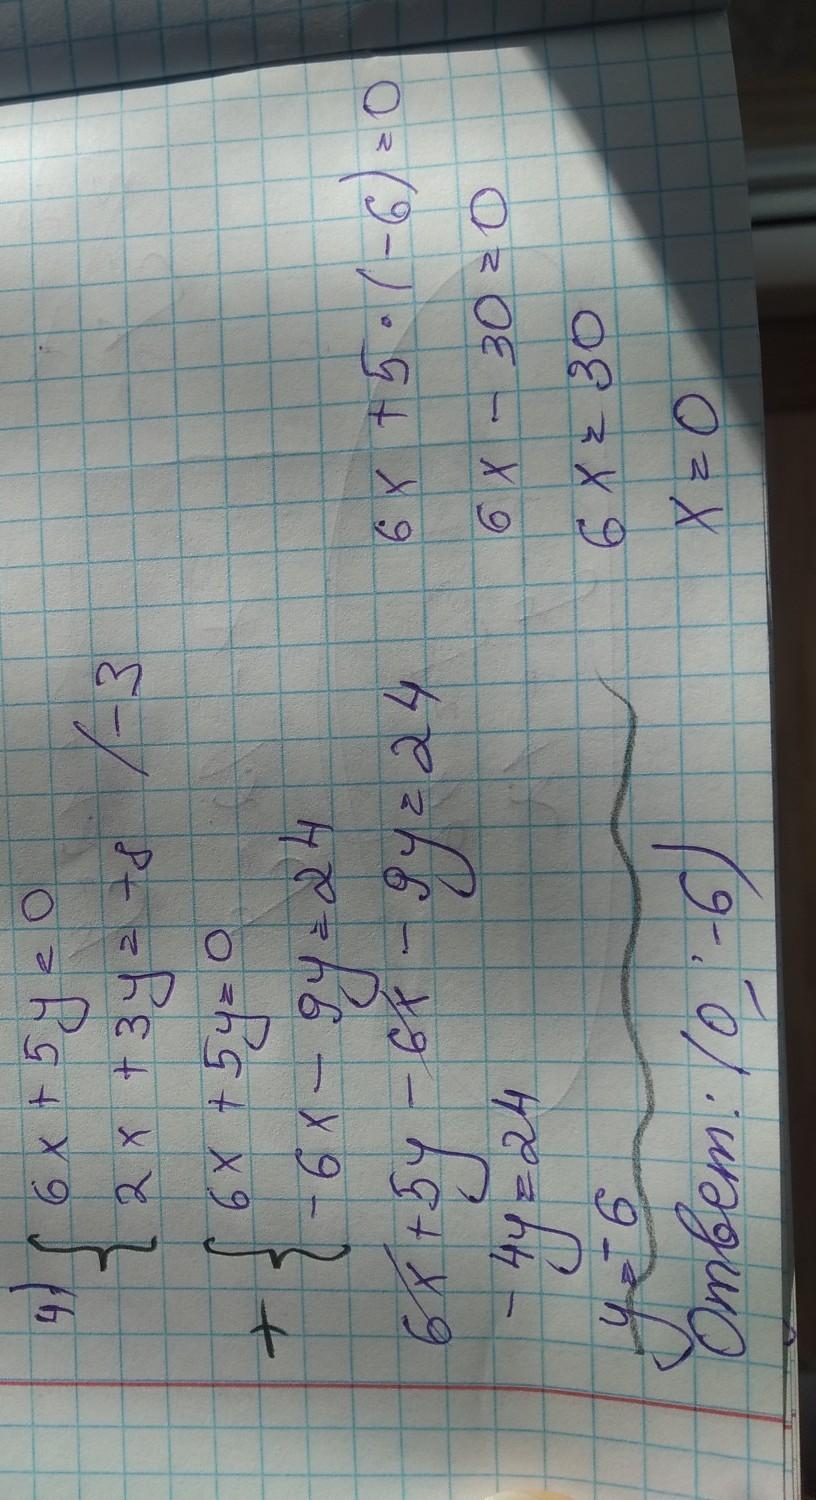 4) { 6x + 5y = 0
2x + 3y = -8 /-3
+ { 6x + 5y = 0
-6x - 9y = 24
6x + 5y - 6x - 9y = 24
-4y = 24
y = -6
6x + 5 · (-6) = 0
6x - 30 = 0
6x = 30
x = 0
Ответ: (0 ; -6)